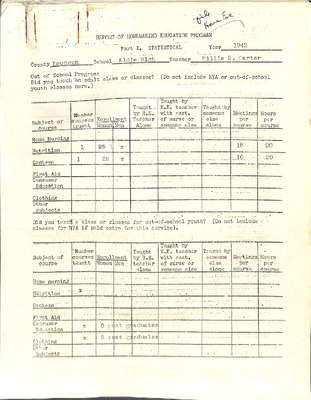 File
Home Ec
REPORT OF HOMEMAKING EDUCATION PROGRAM
Part I. STATISTICAL Year 1942
County Loudoun School Aldie High Teacher Willie S. Carter
Out of School Program:
Did you teach an adult class or classes? (Do not include NYA or out-of-school
youth classes here.)
Subject of course Number courses taught Enrollment Women Men Taught by H.E. Teacher Alone Taught by H.E. Teacher with asst. of nurse or someone else Taught by someone else alone Meetings per course Hours per course
Home Nursing
Nutrition 1 25 x 10 20
Canteen 1 28 x 10 20
First Aid
Consumer Education
Clothing
Other subjects
Did you teach a class or classes for out-of-school youth? (Do not include
classes for NYA if paid extra for this service).
Subject of course Number courses taught Enrollment Women Men Taught by H.E. teacher alone Taught by H.E. teacher with asst. of nurse or someone else Taught by someone else alone Meetings per course Hours per course
Home nursing
Nutrition x
Canteen
First Aid
Consumer Education x 5 post graduates
Clothing x 5 post graduates
Other Subjects